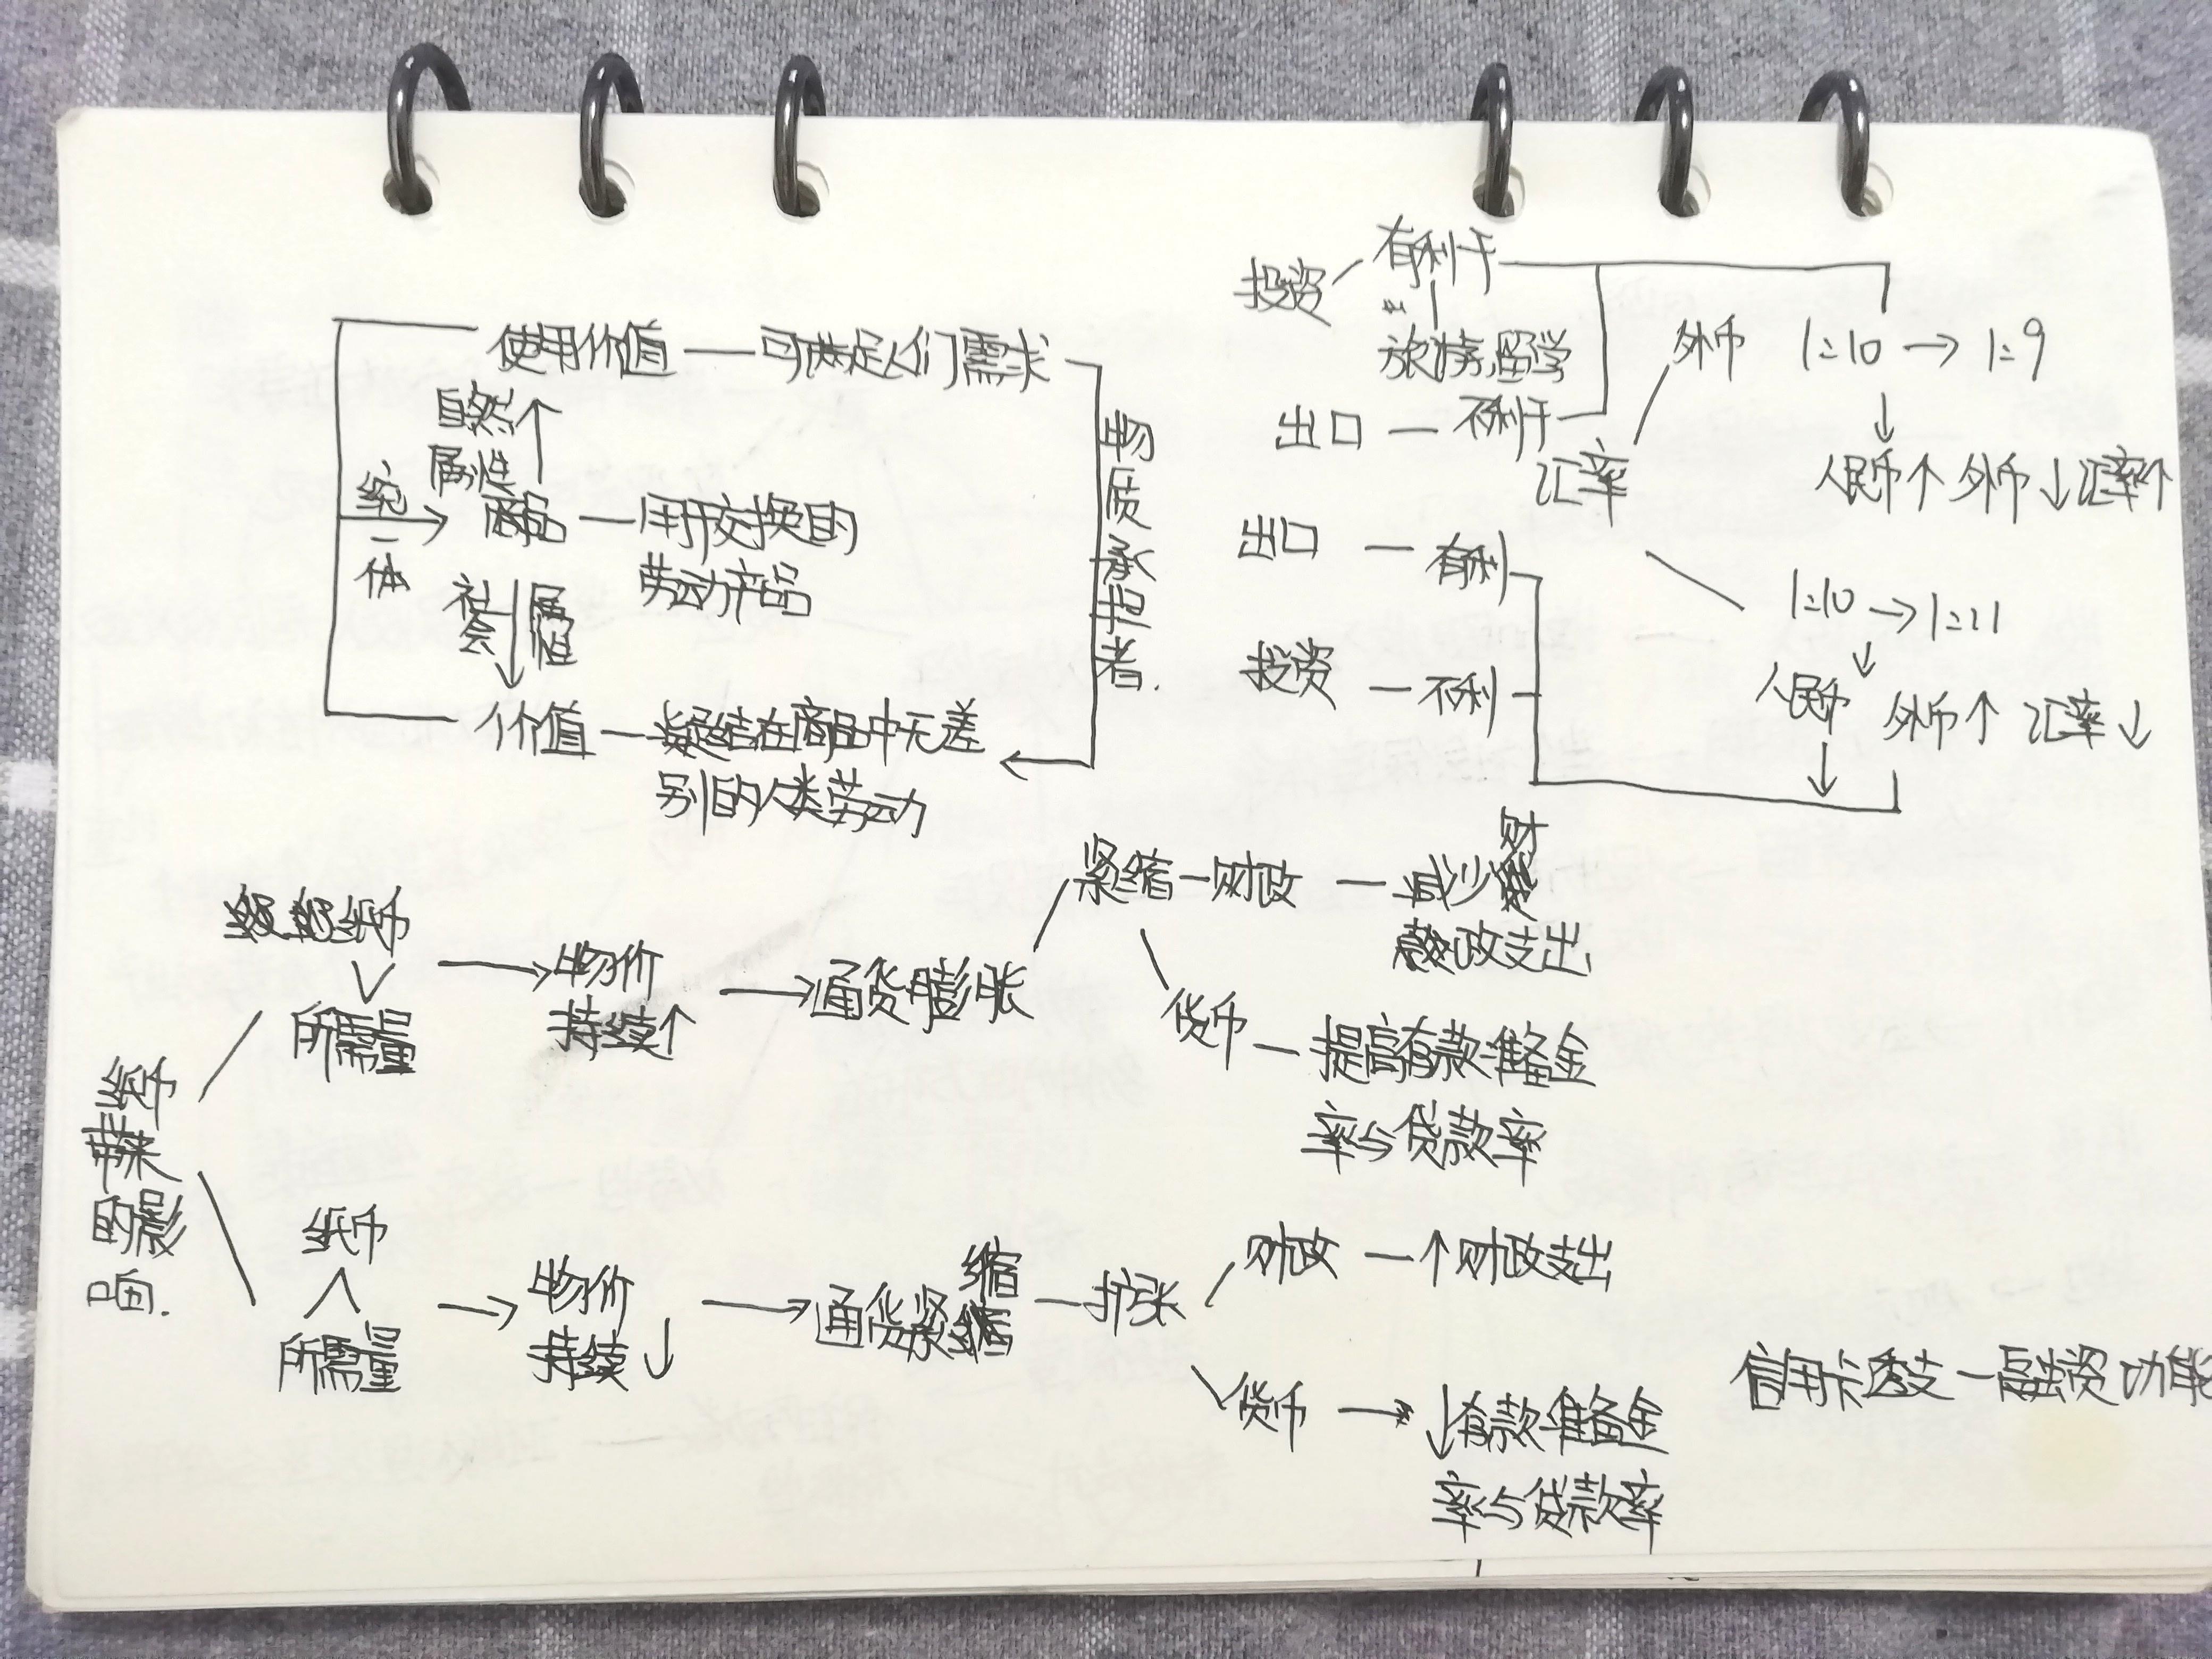 使用价值 — 可满足人们需求
自然
属性
统
一
体
商品 — 用于交换的
劳动产品
社会
属性
价值 — 凝结在商品中无差
别的人类劳动
物质承担者.
投资
有利于
旅游,留学
出口 — 不利于
汇率
外币 1:10 → 1:9
↓
人民币↑ 外币↓汇率↑
出口 — 有利
投资 — 不利
1:10 → 1:11
↓
人民币
↓
外币↑ 汇率↓
纸币
带来
的影
向.
纸币
∨
所需量
→ 物价
持续↑
→ 通货膨胀
紧缩 — 财政 — 减少财
政支出
货币 — 提高存款准备金
率与贷款率
纸币
∧
所需量
→ 物价
持续↓
→ 通货紧缩
— 扩张
财政 — ↑财政支出
货币 → ↓存款准备金
率与贷款率
信用卡透支 — 融资功能